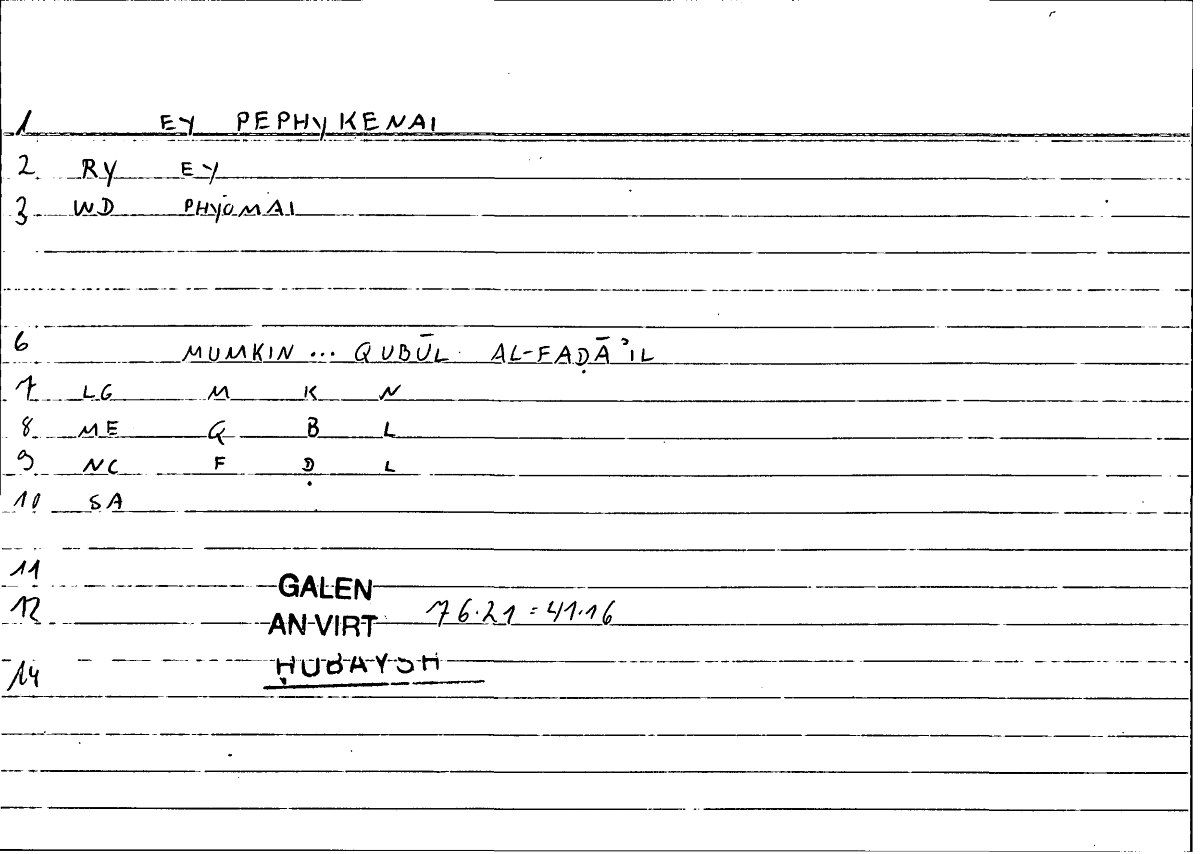 1 EY PEPHYKENAI
2 RY EY
3 WD PHYOMAI
6 MUMKIN ... QUBŪL AL-FAḌĀʾIL
7 LG M K N
8 ME Q B L
9 NC F Ḍ L
10 SA
11 GALEN
12 AN VIRT 76.21 = 41.16
14 ḤUBAYSH